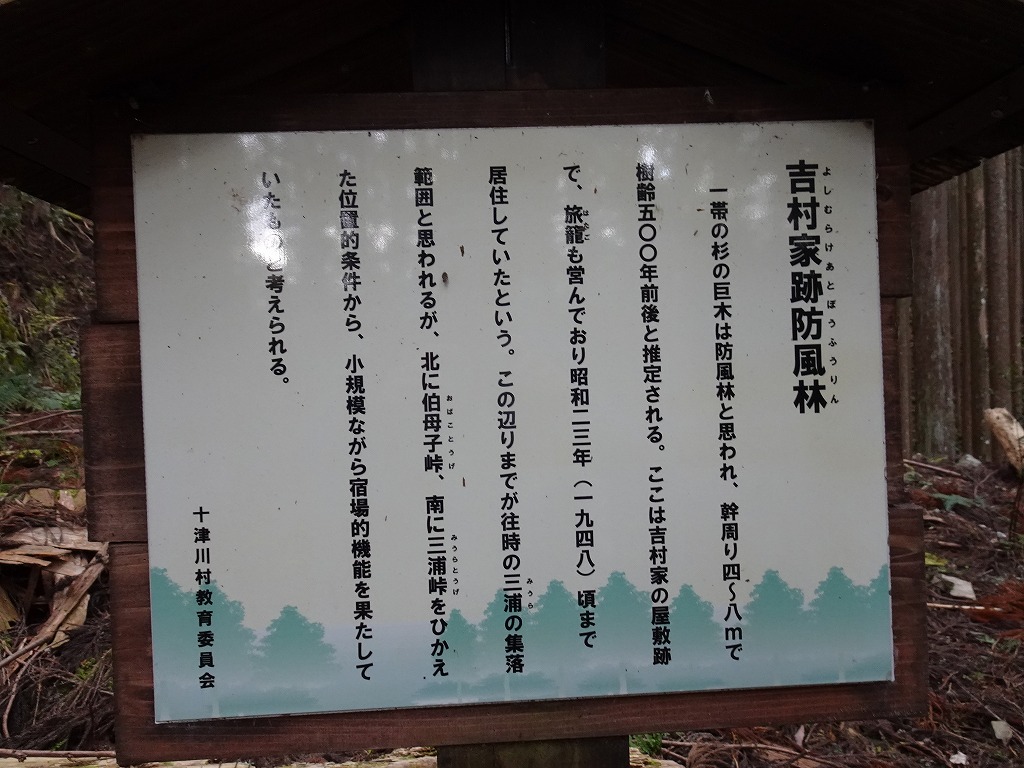 吉村家跡防風林
よしむらけあとぼうふうりん
一帯の杉の巨木は防風林と思われ、幹周り四〜八mで
樹齢五〇〇年前後と推定される。ここは吉村家の屋敷跡
で、旅籠も営んでおり昭和二三年（一九四八）頃まで
はたご
居住していたという。この辺りまでが往時の三浦の集落
みうら
範囲と思われるが、北に伯母子峠、南に三浦峠をひかえ
おばことうげ
みうらとうげ
た位置的条件から、小規模ながら宿場的機能を果たして
いたものと考えられる。
十津川村教育委員会